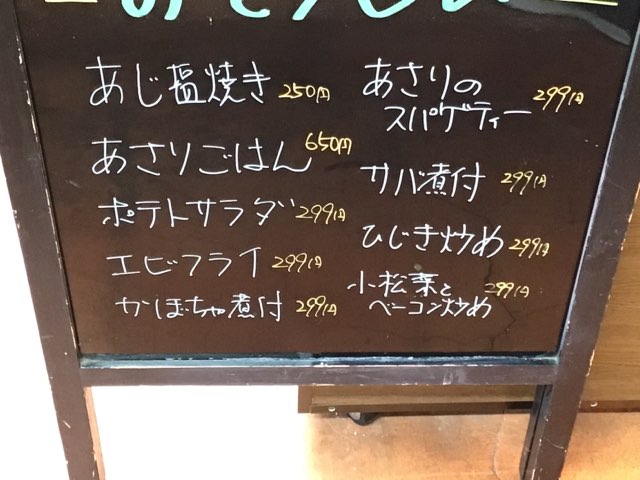 あじ塩焼き 250円
あさりごはん 650円
ポテトサラダ 299円
エビフライ 299円
かぼちゃ煮付 299円
あさりの
スパゲティー 299円
サバ煮付 299円
ひじき炒め 299円
小松菜と 299円
ベーコン炒め